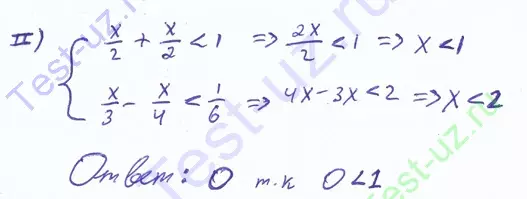 II) { x/2 + x/2 < 1 ⇒ 2x/2 < 1 ⇒ x < 1
x/3 - x/4 < 1/6 ⇒ 4x - 3x < 2 ⇒ x < 2
Ответ: 0 т.к 0 < 1
Test-uz.ru
Test-uz.ru
Test-uz.ru